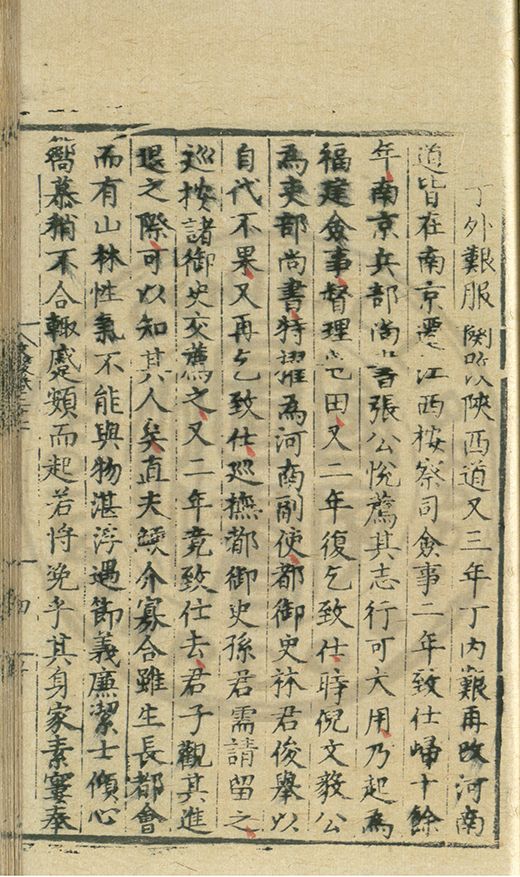 丁外艱服闋改陝西道又三年丁内艱再改河南
道皆在南京遷江西按察司僉事二年致仕歸十餘
年南京兵部尚書張公悅薦其志行可大用乃起為
福建僉事督理屯田又二年復乞致仕時倪文毅公
為吏部尚書特擢為河南副使都御史林君俊舉以
自代不果又再乞致仕巡撫都御史孫君需請留之
巡按諸御史交薦之又二年竟致仕去君子觀其進
退之際可以知其人矣直夫鯁介寡合雖生長都會
而有山林性氣不能與物湛浮遇節義廉潔士傾心
嚮慕稍不合輒蹙頞而起若將浼乎其身家素窶奉